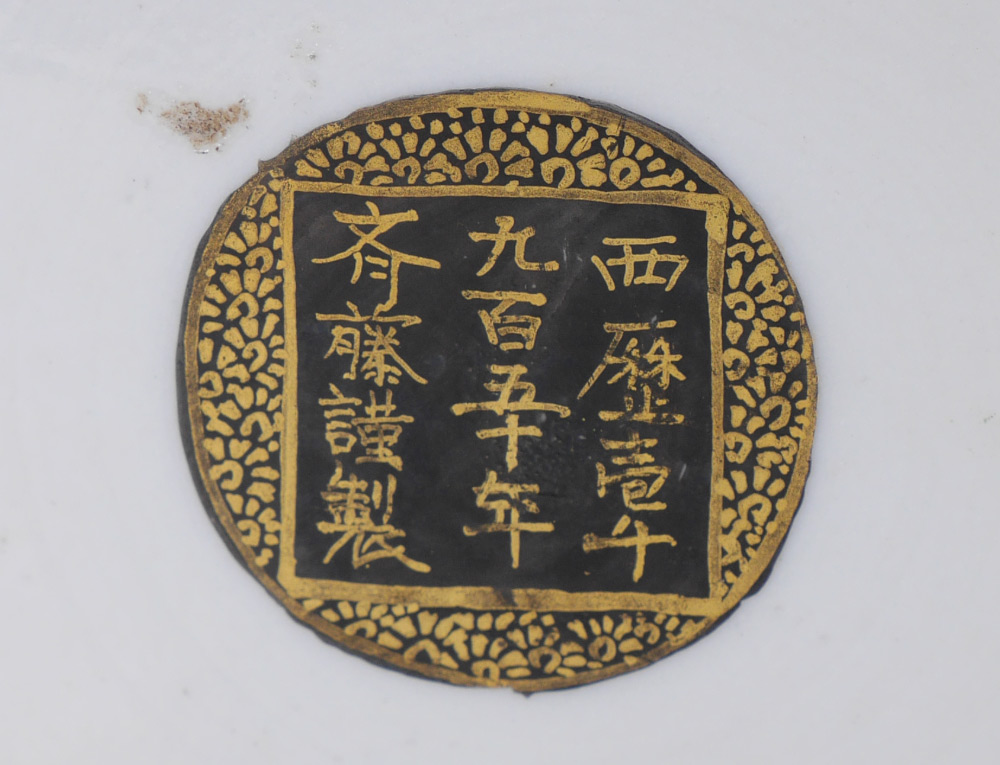 西歴壱千
九百五十年
斉藤謹製